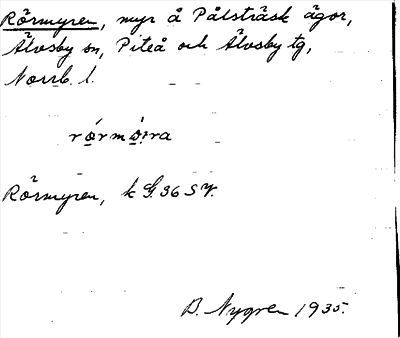 Rörmyren, myr å Pålsträsk ägor,
Älvsby sn, Piteå och Älvsby tg,
Norrb. l.
Rörmyren, k G. 36 SV.
B. Nygren 1935.